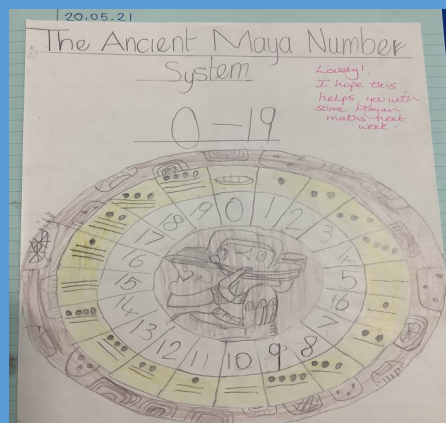 20.05.21
The Ancient Maya Number
System
0-19
Lovely!
I hope this
helps you with
some Mayan
maths next
week.
0
1
2
3
4
5
6
7
8
9
10
11
12
13
14
15
16
17
18
19